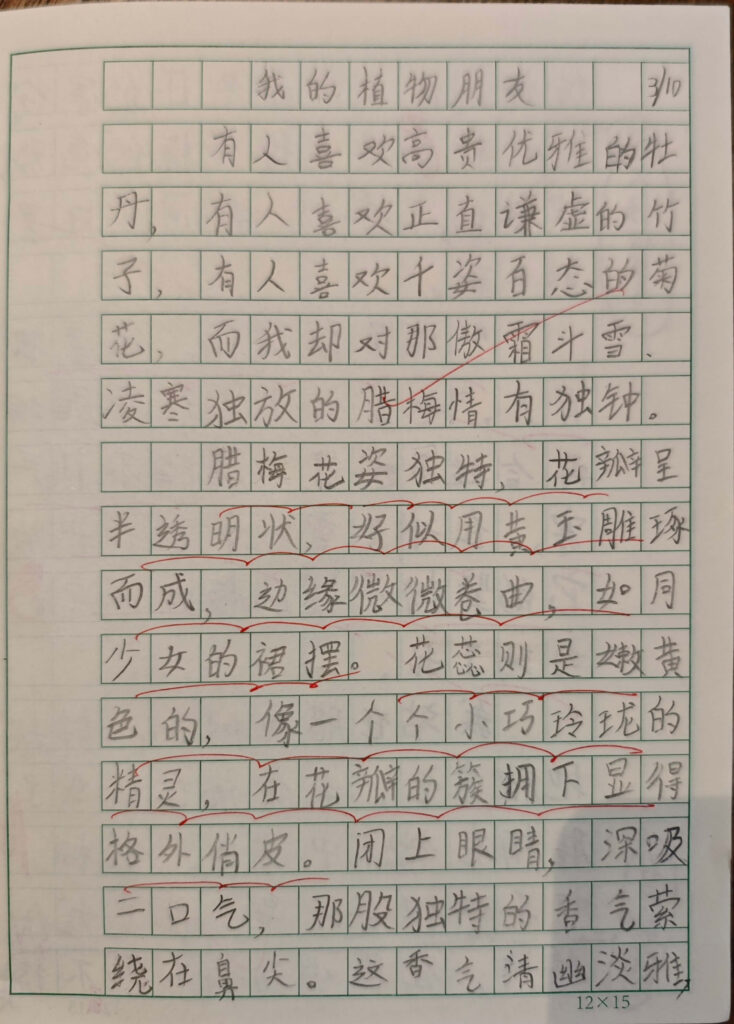 我的植物朋友 3/10
有人喜欢高贵优雅的牡
丹，有人喜欢正直谦虚的竹
子，有人喜欢千姿百态的菊
花，而我却对那傲霜斗雪、
凌寒独放的腊梅情有独钟。
腊梅花姿独特，花瓣呈
半透明状，好似用黄玉雕琢
而成，边缘微微卷曲，如同
少女的裙摆。花蕊则是嫩黄
色的，像一个个小巧玲珑的
精灵，在花瓣的簇拥下显得
格外俏皮。闭上眼睛，深吸
一口气，那股独特的香气萦
绕在鼻尖。这香气清幽淡雅，
12×15